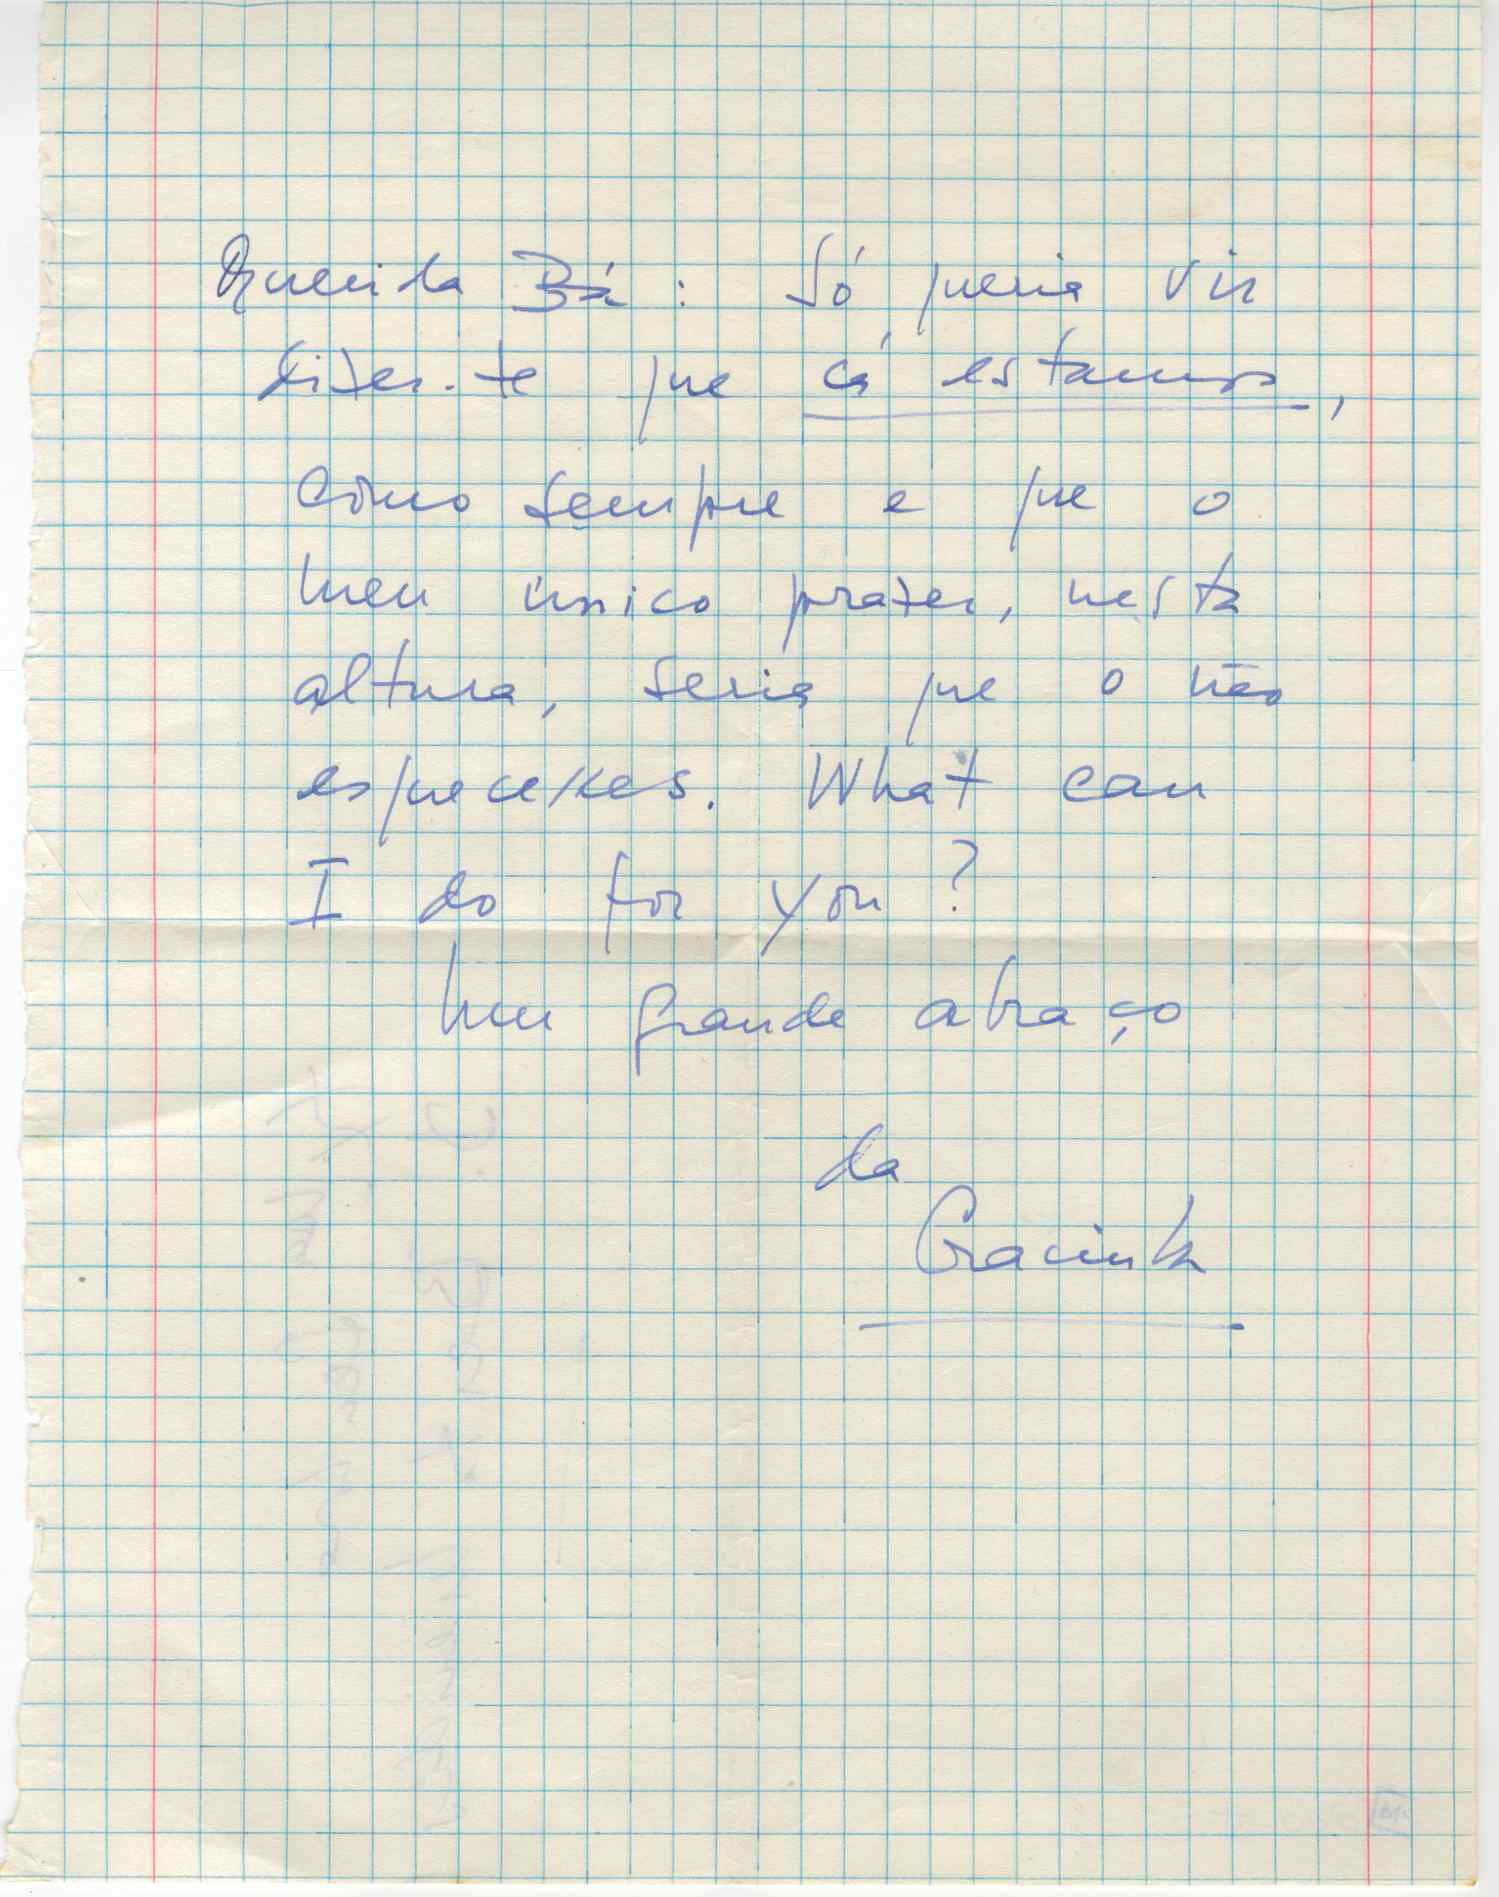 Querida Bá: Só queria vir
dizer-te que cá estamos,
como sempre e que o
meu único prazer, nesta
altura, seria que o não
esquecesses. What can
I do for you?
Um grande abraço
da
Gracinda